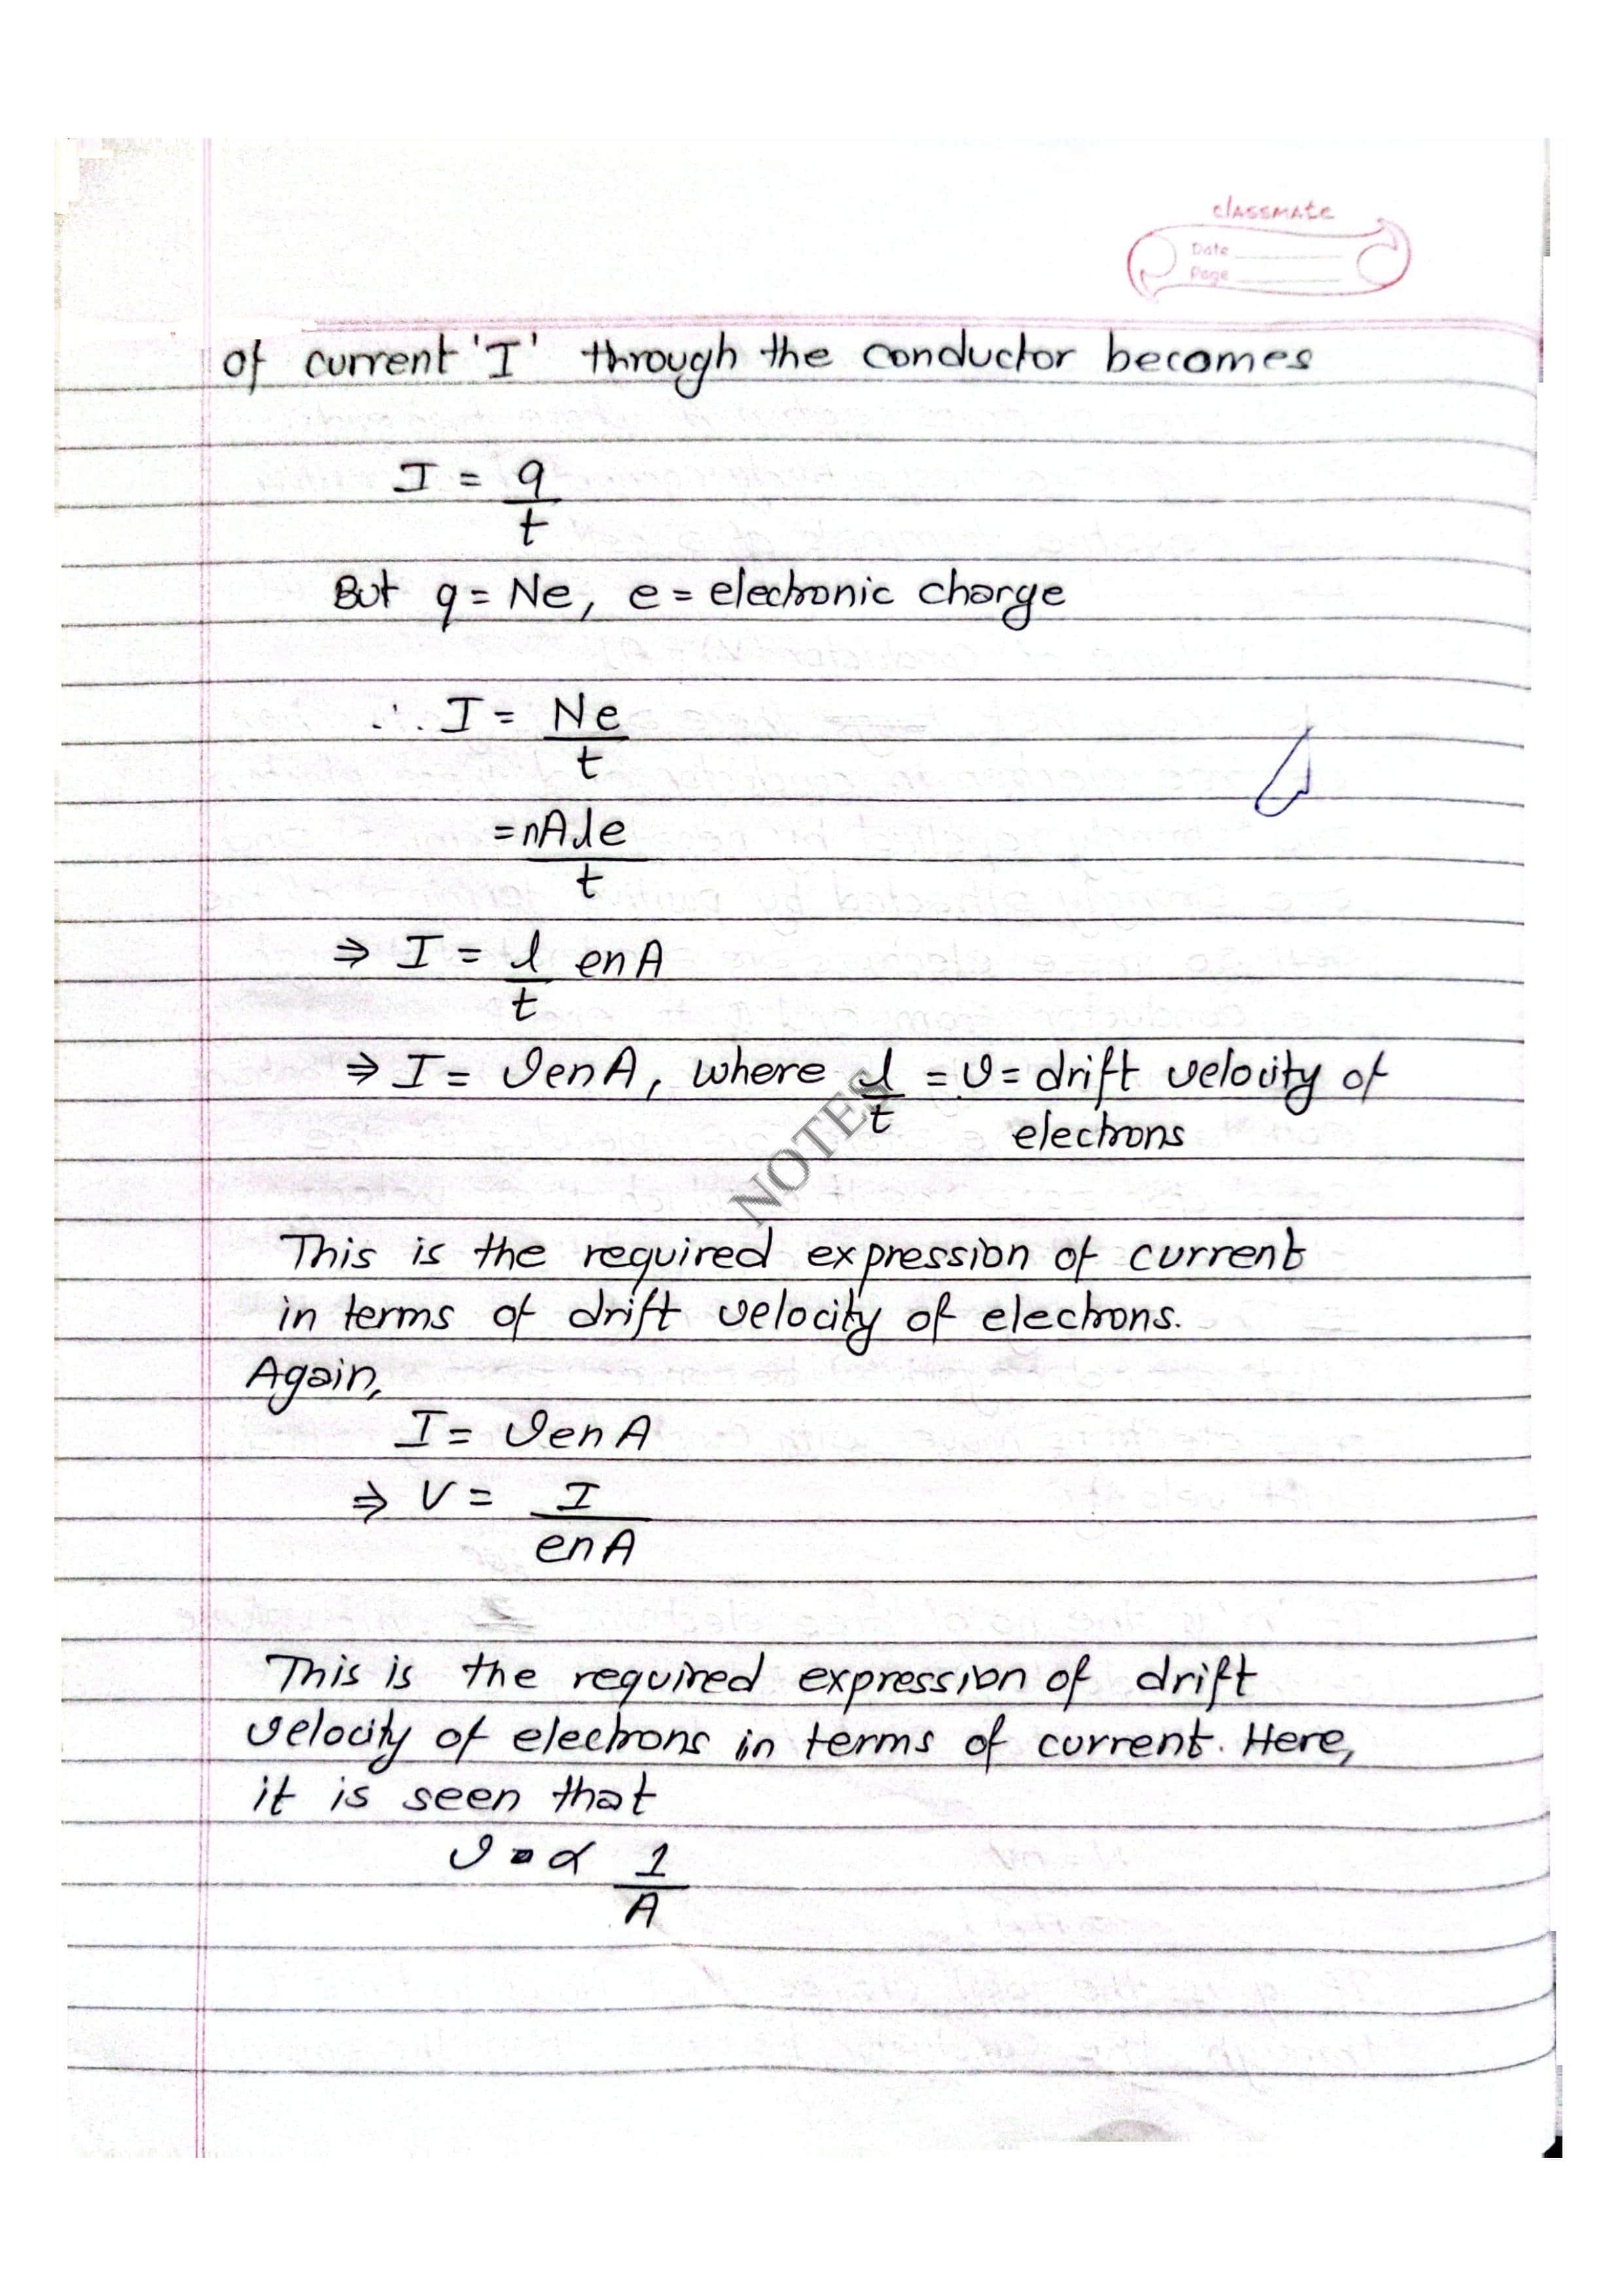 classmate
Date
Page
of current 'I' through the conductor becomes
I = q/t
But q = Ne, e = electronic charge
∴ I = Ne/t
= nAle/t
⇒ I = l/t enA
⇒ I = venA, where l/t = v = drift velocity of
electrons
NOTES
This is the required expression of current
in terms of drift velocity of electrons.
Again,
I = venA
⇒ V = I/enA
This is the required expression of drift
velocity of electrons in terms of current. Here,
it is seen that
v ∝ 1/A